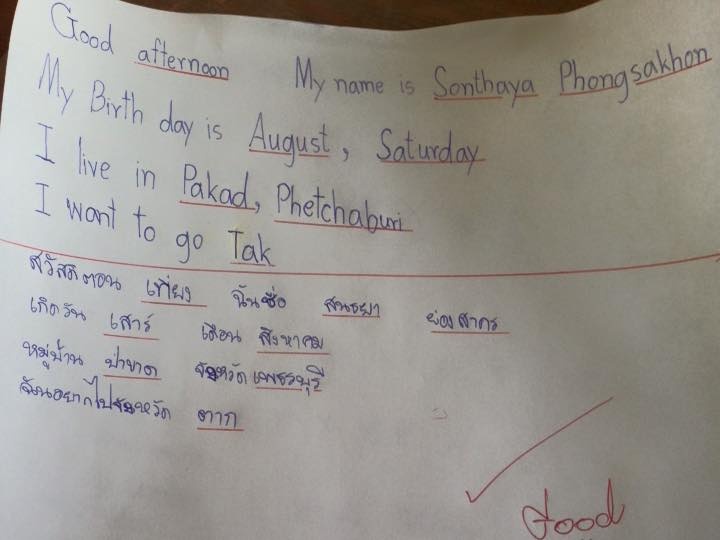 Good afternoon My name is Sonthaya Phongsakhon
My Birth day is August, Saturday
I live in Pakad, Phetchaburi
I want to go Tak
สวัสดีตอน เที่ยง ฉันชื่อ สนธยา ผ่องสาคร
เกิดวัน เสาร์ เดือน สิงหาคม
หมู่บ้าน ป่าขาด จังหวัด เพชรบุรี
ฉันอยากไปจังหวัด ตาก
Good